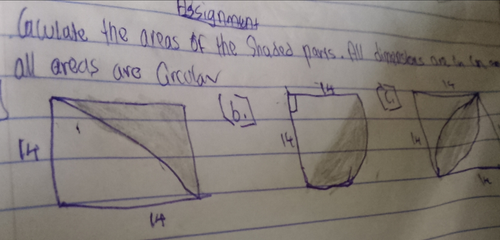 Assignment
Calculate the areas of the shaded parts. All dimensions are in cm
all areas are Circular
(b.) 14 (c) 14
14 14 14
14 14